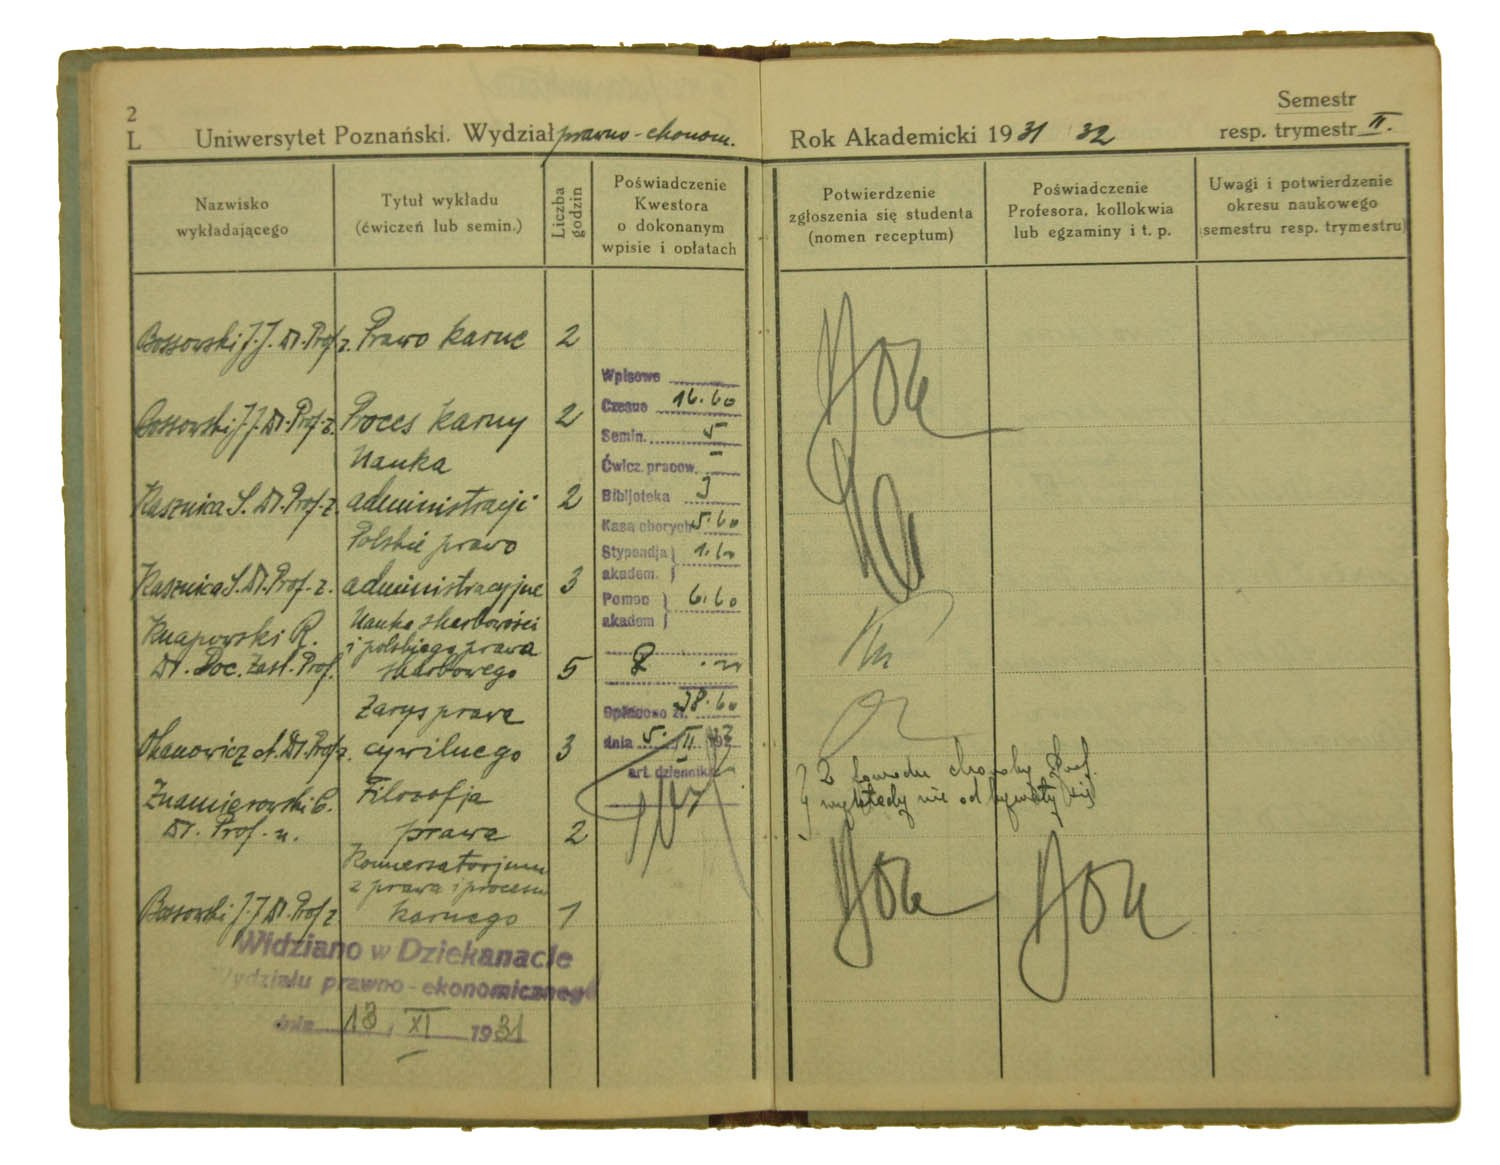 2
L Uniwersytet Poznański. Wydział prawno-ekonom.
Nazwisko
wykładającego
Tytuł wykładu
(ćwiczeń lub semin.)
Liczba
godzin
Poświadczenie
Kwestora
o dokonanym
wpisie i opłatach
Bossowski J. J. Dr. Prof. z. Prawo karne 2
Bossowski J. J. Dr. Prof. z. Proces karny 2
Nauka
Kasznica S. Dr. Prof. z. administracji 2
Polskie prawo
Kasznica S. Dr. Prof. z. administracyjne 3
Knapowski R. Nauka skarbowości
i polskiego prawa
Dr. Doc. Zast. Prof. skarbowego 5
Zarys prawa
Ohanowicz A. Dr. Prof. z. cywilnego 3
Znamierowski C. Filozofja
Dr. Prof. n. prawa 2
Konwersatorjum
z prawa i procesu
Bossowski J. J. Dr. Prof. z. karnego 1
Wpisowe
Czesne 16.60
Semin. 5
Ćwicz. pracow. –
Bibljoteka 3
Kasa chorych 5.60
Stypendja } 1.60
akadem. }
Pomoc } 6.60
akadem }
38.60
Opłacono zł.
dnia 5. II 193
art. dziennika
Widziano w Dziekanacie
Wydziału prawno-ekonomicznego
dnia 13, XI 1931
Semestr
Rok Akademicki 1931 32 resp. trymestr II.
Potwierdzenie
zgłoszenia się studenta
(nomen receptum)
Poświadczenie
Profesora, kollokwia
lub egzaminy i t. p.
Uwagi i potwierdzenie
okresu naukowego
(semestru resp. trymestru)
Z powodu choroby Prof.
wykłady nie odbywały się